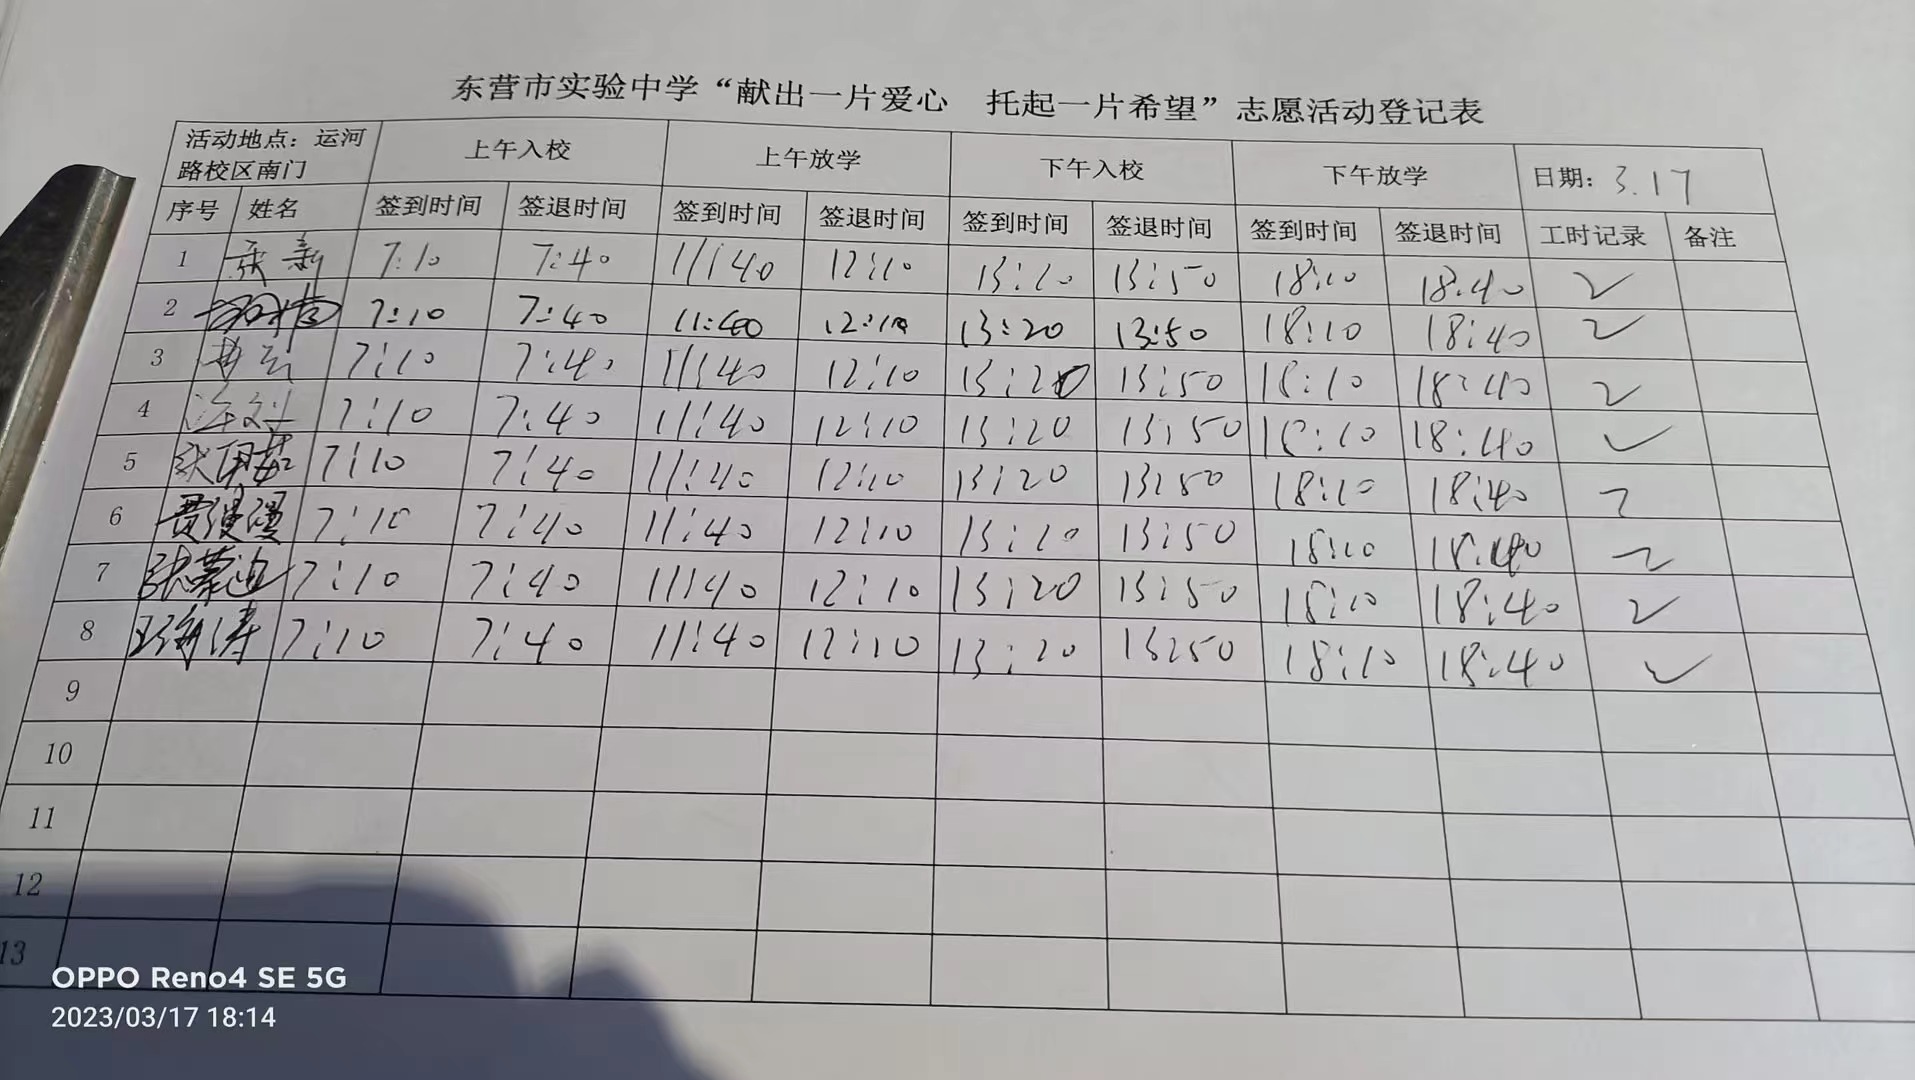 东营市实验中学“献出一片爱心 托起一片希望”志愿活动登记表
活动地点：运河路校区南门 上午入校 上午放学 下午入校 下午放学 日期：3.17
序号 姓名 签到时间 签退时间 签到时间 签退时间 签到时间 签退时间 签到时间 签退时间 工时记录 备注
1 张新 7:10 7:40 11:40 12:10 13:20 13:50 18:10 18:40 2
2 7:10 7:40 11:40 12:10 13:20 13:50 18:10 18:40 2
3 7:10 7:40 11:40 12:10 13:20 13:50 18:10 18:40 2
4 7:10 7:40 11:40 12:10 13:20 13:50 18:10 18:40 2
5 7:10 7:40 11:40 12:10 13:20 13:50 18:10 18:40 2
6 贾漫漫 7:10 7:40 11:40 12:10 13:20 13:50 18:10 18:40 2
7 7:10 7:40 11:40 12:10 13:20 13:50 18:10 18:40 2
8 王海涛 7:10 7:40 11:40 12:10 13:20 13:50 18:10 18:40 2
9
10
11
12
13
OPPO Reno4 SE 5G
2023/03/17 18:14